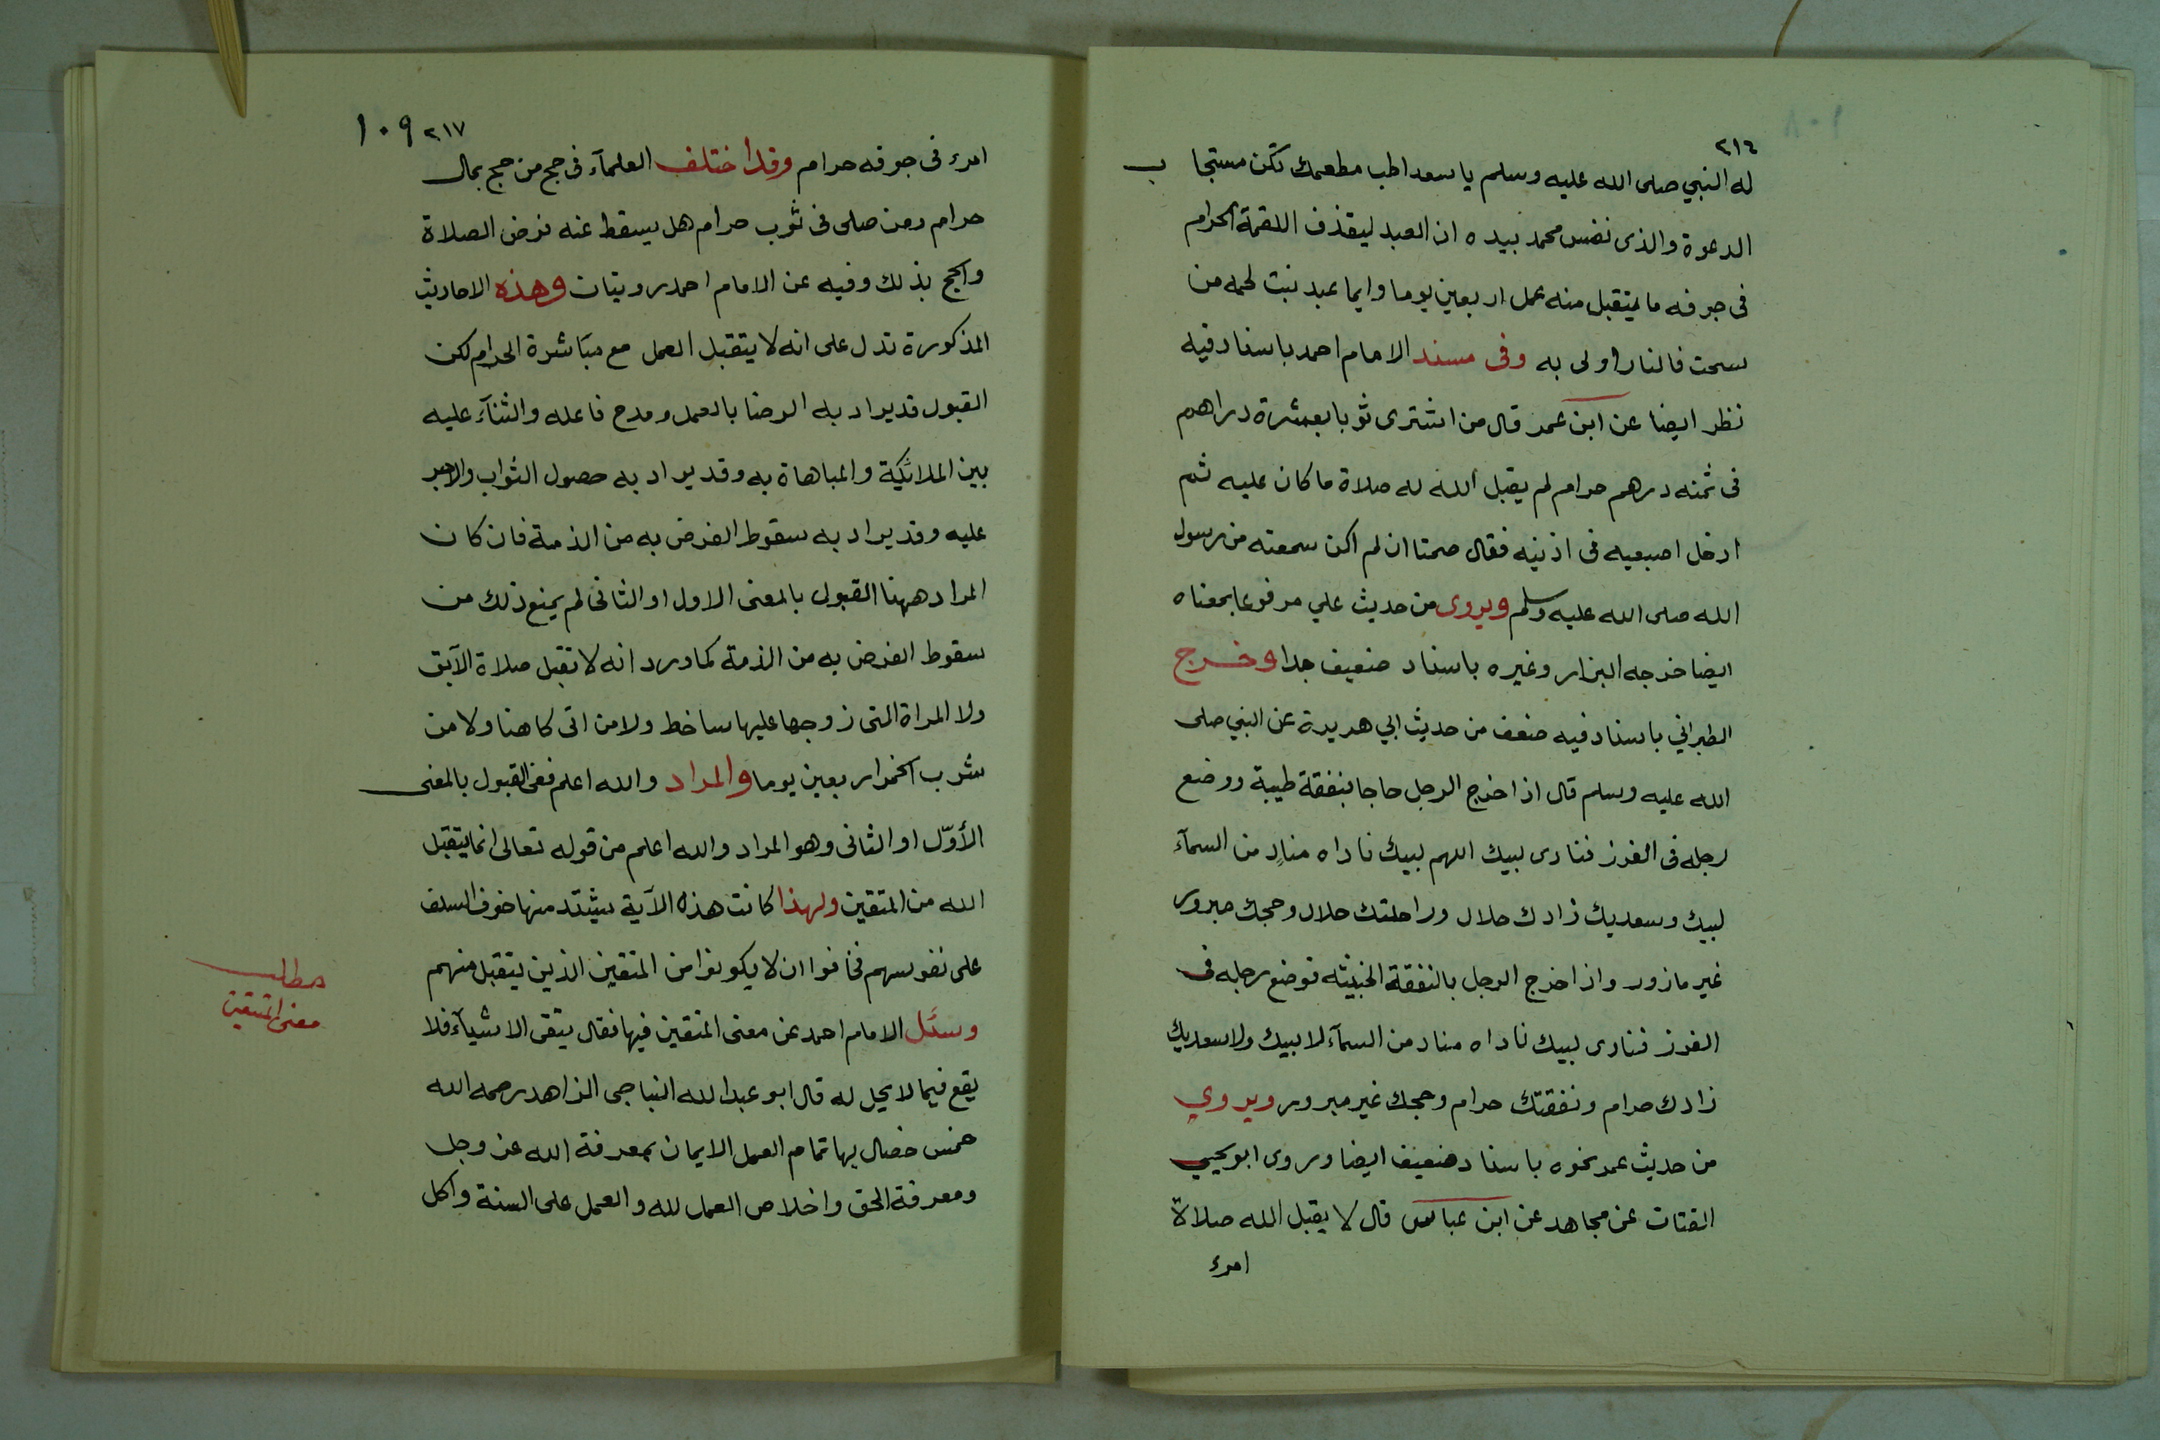 ٢١٦
له النبي صلى الله عليه وسلم يا سعد اطب مطعمك تكن مستجا ب
الدعوة والذى نفس محمد بيده ان العبد ليقذف اللقمة الحرام
فى جوفه ما يتقبل منه عمل اربعين يوما وايما عبد نبت لحمه من
سحت فالنار اولى به وفى مسند الامام احمد باسناد فيه
نظر ايضا عن ابن عمر قال من اشترى ثوبا بعشرة دراهم
فى ثمنه درهم حرام لم يقبل الله له صلاة ما كان عليه ثم
ادخل اصبعيه فى اذنيه فقال صمتا ان لم اكن سمعته من رسول
الله صلى الله عليه وسلم ويروى من حديث علي مرفوعا بمعناه
ايضا خرجه البزار وغيره باسناد ضعيف جدا وخرج
الطبراني باسناد فيه ضعف من حديث ابي هريرة عن النبي صلى
الله عليه وسلم قال اذا خرج الرجل حاجا بنفقة طيبة ووضع
رجله فى الغرز فنادى لبيك اللهم لبيك ناداه منادٍ من السمآء
لبيك وسعديك زادك حلال وراحلتك حلال وحجك مبرور
غير مازور واذا خرج الرجل بالنفقة الخبيثه فوضع رجله فى
الغرز فنادى لبيك ناداه مناد من السمآء لا لبيك ولا سعديك
زادك حرام ونفقتك حرام وحجك غير مبرور ويروي
من حديث عمر نحوه باسناد ضعيف ايضا وروى ابو يحيي
القتات عن مجاهد عن ابن عباس قال لا يقبل الله صلاة
امرء
٢١٧ ١٠٩
امرء فى جوفه حرام وقد اختلف العلمآء فى حج من حج بمال
حرام ومن صلى فى ثوب حرام هل يسقط عنه فرض الصلاة
والحج بذلك وفيه عن الامام احمد رويتان وهذه الاحاديث
المذكورة تدل على انه لا يتقبل العمل مع مباشرة الحرام لكن
القبول قد يراد به الرضا بالعمل ومدح فاعله والثنآء عليه
بين الملائكة والمباهاة به وقد يراد به حصول الثواب والاجر
عليه وقد يراد به سقوط الفرض به من الذمة فان كان
المراد ههنا القبول بالمعنى الاول او الثانى لم يمنع ذلك من
سقوط الفرض به من الذمة كما ورد انه لا تقبل صلاة الآبق
ولا المراة التى زوجها عليها ساخط ولا من اتى كاهنا ولا من
شرب الخمر اربعين يوما والمراد والله اعلم نفى القبول بالمعنى
الأوّل او الثانى وهو المراد والله اعلم من قوله تعالى انما يتقبل
الله من المتقين ولهذا كانت هذه الآية يشتد منها خوف السلف
على نفوسهم فخافوا ان لا يكونوا من المتقين الذين يتقبل منهم
وسئل الامام احمد عن معنى المتقين فيها فقال يتقى الاشيآء فلا
يقع فيما لا يحل له قال ابو عبد الله النباجى الزاهد رحمه الله
خمس خصال بها تمام العمل الايمان بمعرفة الله عز وجل
ومعرفة الحق واخلاص العمل لله والعمل على السنة واكل
مطلب
معنى المتقين